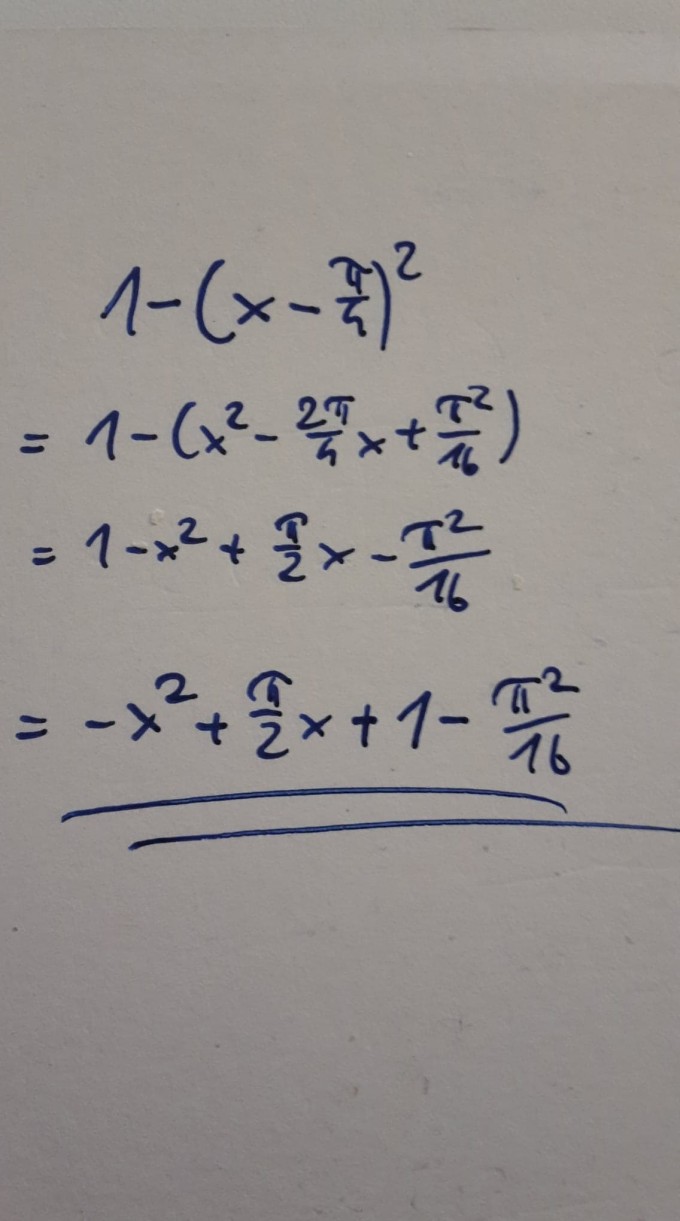 1-(x-π/4)²
= 1-(x²-2π/4x+π²/16)
= 1-x²+π/2x-π²/16
= -x²+π/2x+1-π²/16